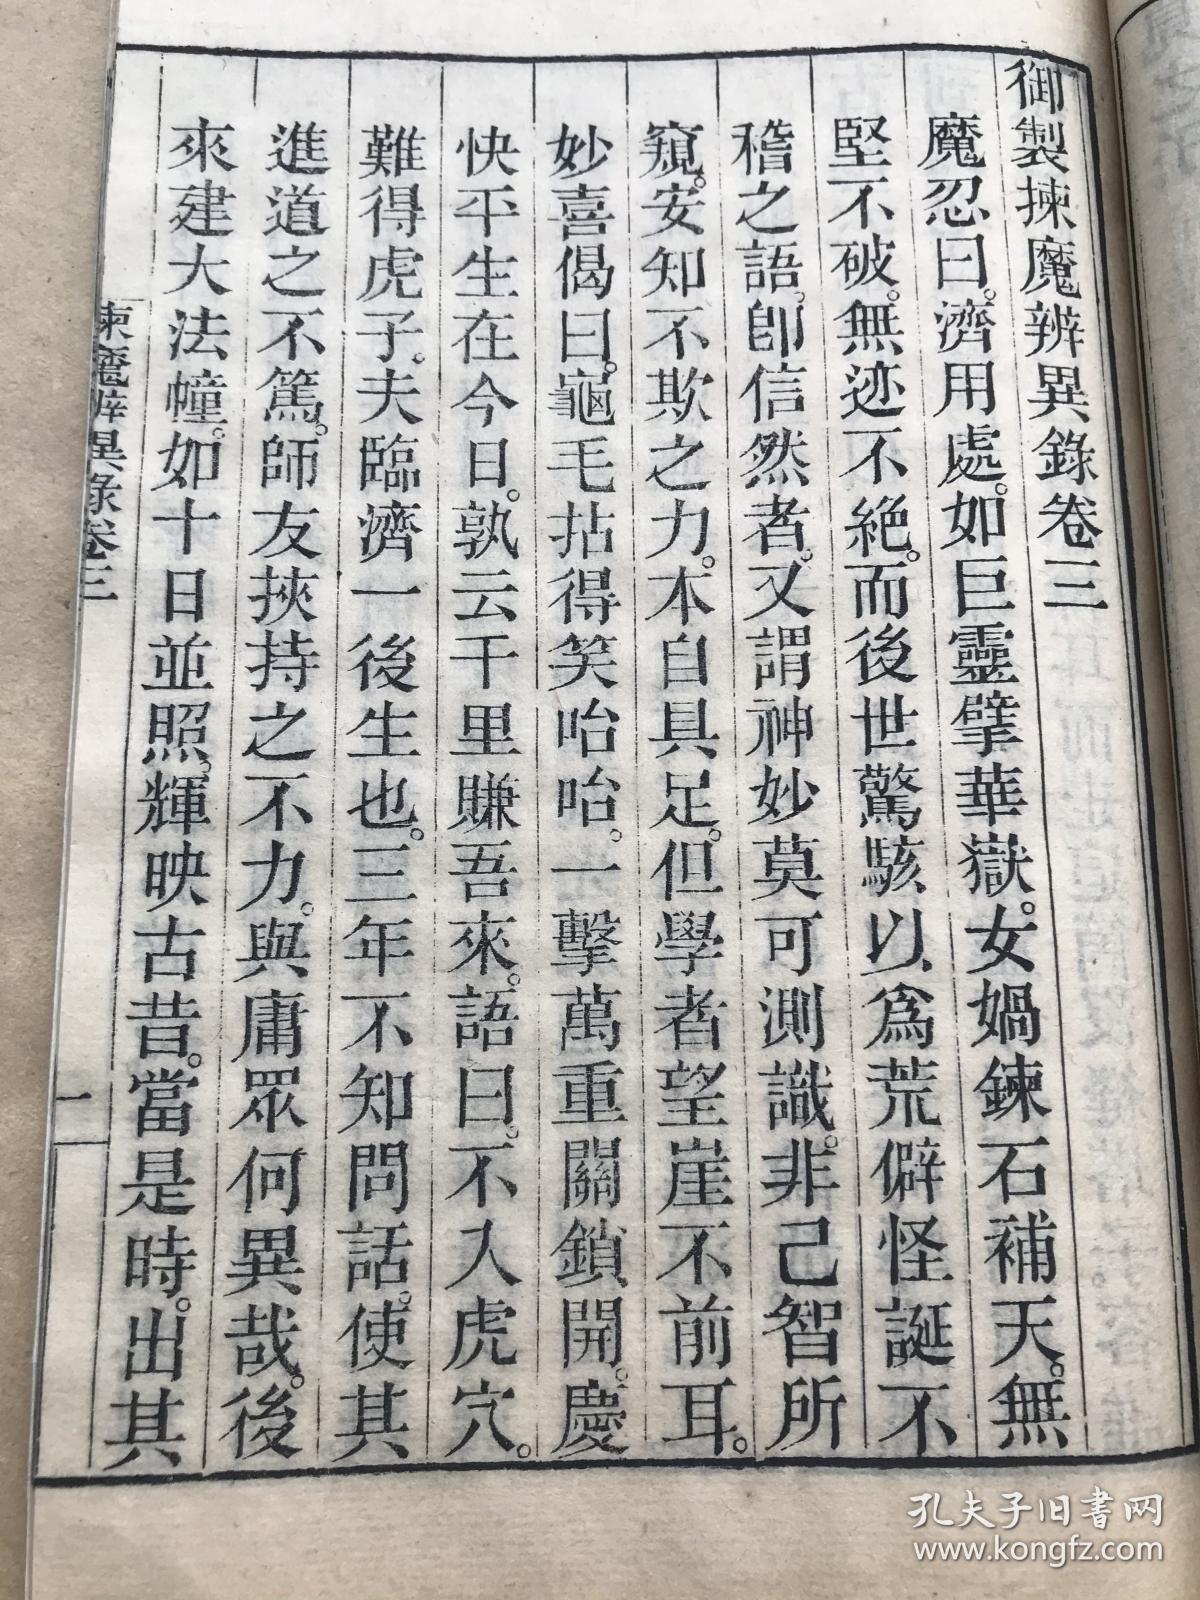 御製揀魔辨異錄卷三
魔忍曰。濟用處。如巨靈擘華嶽。女媧鍊石補天。無
堅不破。無迹不絕。而後世驚駭以為荒僻怪誕不
稽之語。卽信然者。又謂神妙莫可測識。非己智所
窺。安知不欺之力。本自具足。但學者望崖不前耳。
妙喜偈曰。龜毛拈得笑咍咍。一擊萬重關鎖開。慶
快平生在今日。孰云千里賺吾來。語曰。不入虎穴。
難得虎子。夫臨濟一後生也。三年不知問話。使其
進道之不篤。師友挾持之不力。與庸眾何異哉。後
來建大法幢。如十日並照。輝映古昔。當是時。出其
揀魔辨異錄卷三
一
孔夫子旧书网
www.kongfz.com